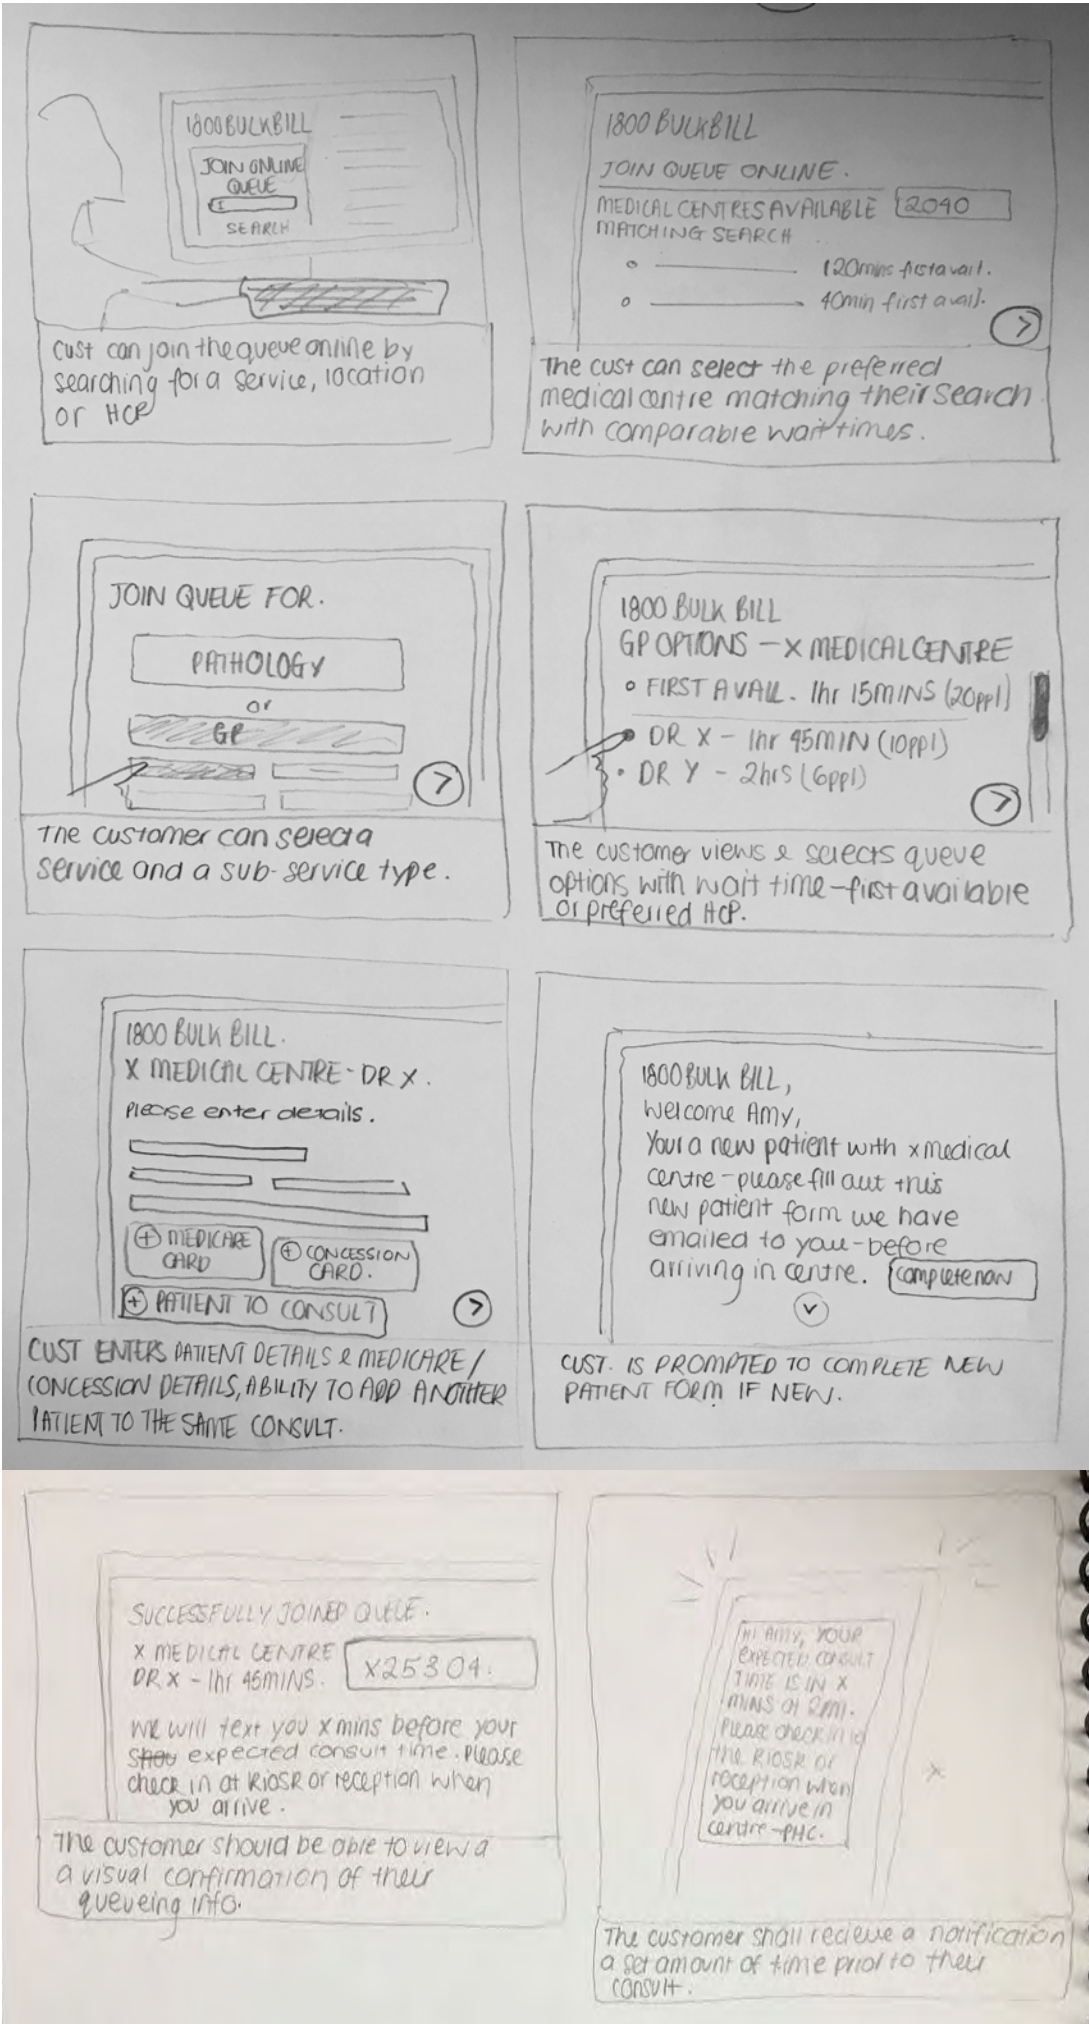 1800BULKBILL
JOIN ONLINE
QUEUE
SEARCH
Cust can join the queue online by
searching for a service, location
or HCP
1800 BULKBILL
JOIN QUEUE ONLINE.
MEDICAL CENTRES AVAILABLE 2040
MATCHING SEARCH
120mins first avail.
40min first avail.
>
The cust can select the preferred
medical centre matching their search
with comparable wait times.
JOIN QUEUE FOR.
PATHOLOGY
or
GP
>
The customer can select a
service and a sub-service type.
1800 BULK BILL
GP OPTIONS - X MEDICAL CENTRE
FIRST AVAIL. 1hr 15MINS (20ppl)
DR X - 1hr 45MIN (10ppl)
DR Y - 2hrs (6ppl)
>
The customer views & selects queue
options with wait time - first available
or preferred HCP.
1800 BULK BILL.
X MEDICAL CENTRE - DR X.
Please enter details.
+ MEDICARE
CARD
+ CONCESSION
CARD.
+ PATIENT TO CONSULT
>
CUST ENTERS PATIENT DETAILS & MEDICARE/
CONCESSION DETAILS, ABILITY TO ADD ANOTHER
PATIENT TO THE SAME CONSULT.
1800 BULK BILL,
Welcome Amy,
Your a new patient with x medical
centre - please fill out this
new patient form we have
emailed to you - before
arriving in centre. Complete now
CUST. IS PROMPTED TO COMPLETE NEW
PATIENT FORM IF NEW.
SUCCESSFULLY JOINED QUEUE.
X MEDICAL CENTRE
DR X - 1hr 45MINS.
X25304.
We will text you x mins before your
expected consult time. Please
check in at KIOSK or reception when
you arrive.
The customer should be able to view a
a visual confirmation of their
queueing info.
HI AMY, YOUR
EXPECTED CONSULT
TIME IS IN X
MINS at 2PM.
Please check in @
the KIOSK or
reception when
you arrive in
centre - PHC.
The customer shall recieve a notification
a set amount of time prior to their
consult.